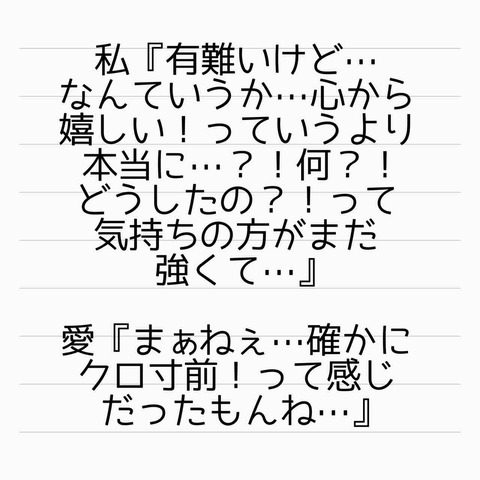 私『有難いけど…
なんていうか…心から
嬉しい！っていうより
本当に…？！何？！
どうしたの？！って
気持ちの方がまだ
強くて…』
愛『まぁねぇ…確かに
クロ寸前！って感じ
だったもんね…』